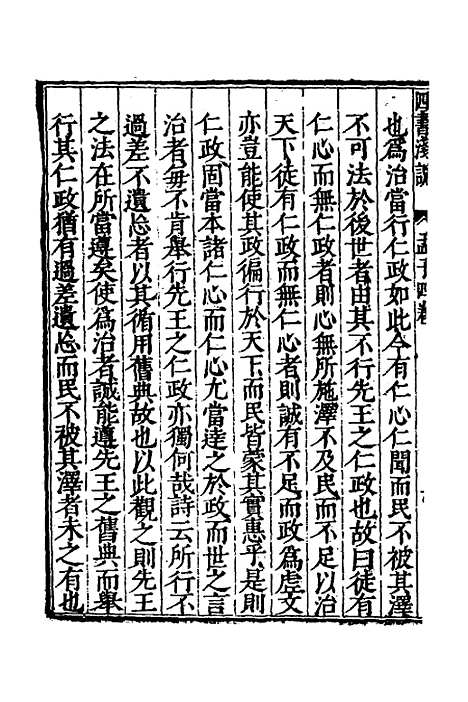 四書淺說 孟子四卷
也為治當行仁政如此今有仁心仁聞而民不被其澤
不可法於後世者由其不行先王之仁政也故曰徒有
仁心而無仁政者則心無所施澤不及民而不足以治
天下徒有仁政而無仁心者則誠有不足而政為虛文
亦豈能使其政徧行於天下而民皆蒙其實惠乎是則
仁政固當本諸仁心而仁心尤當達之於政而世之言
治者毋不肯舉行先王之仁政亦獨何哉詩云所行不
過差不遺忘者以其循用舊典故也以此觀之則先王
之法在所當遵矣使為治者誠能遵先王之舊典而舉
行其仁政猶有過差遺忘而民不被其澤者未之有也